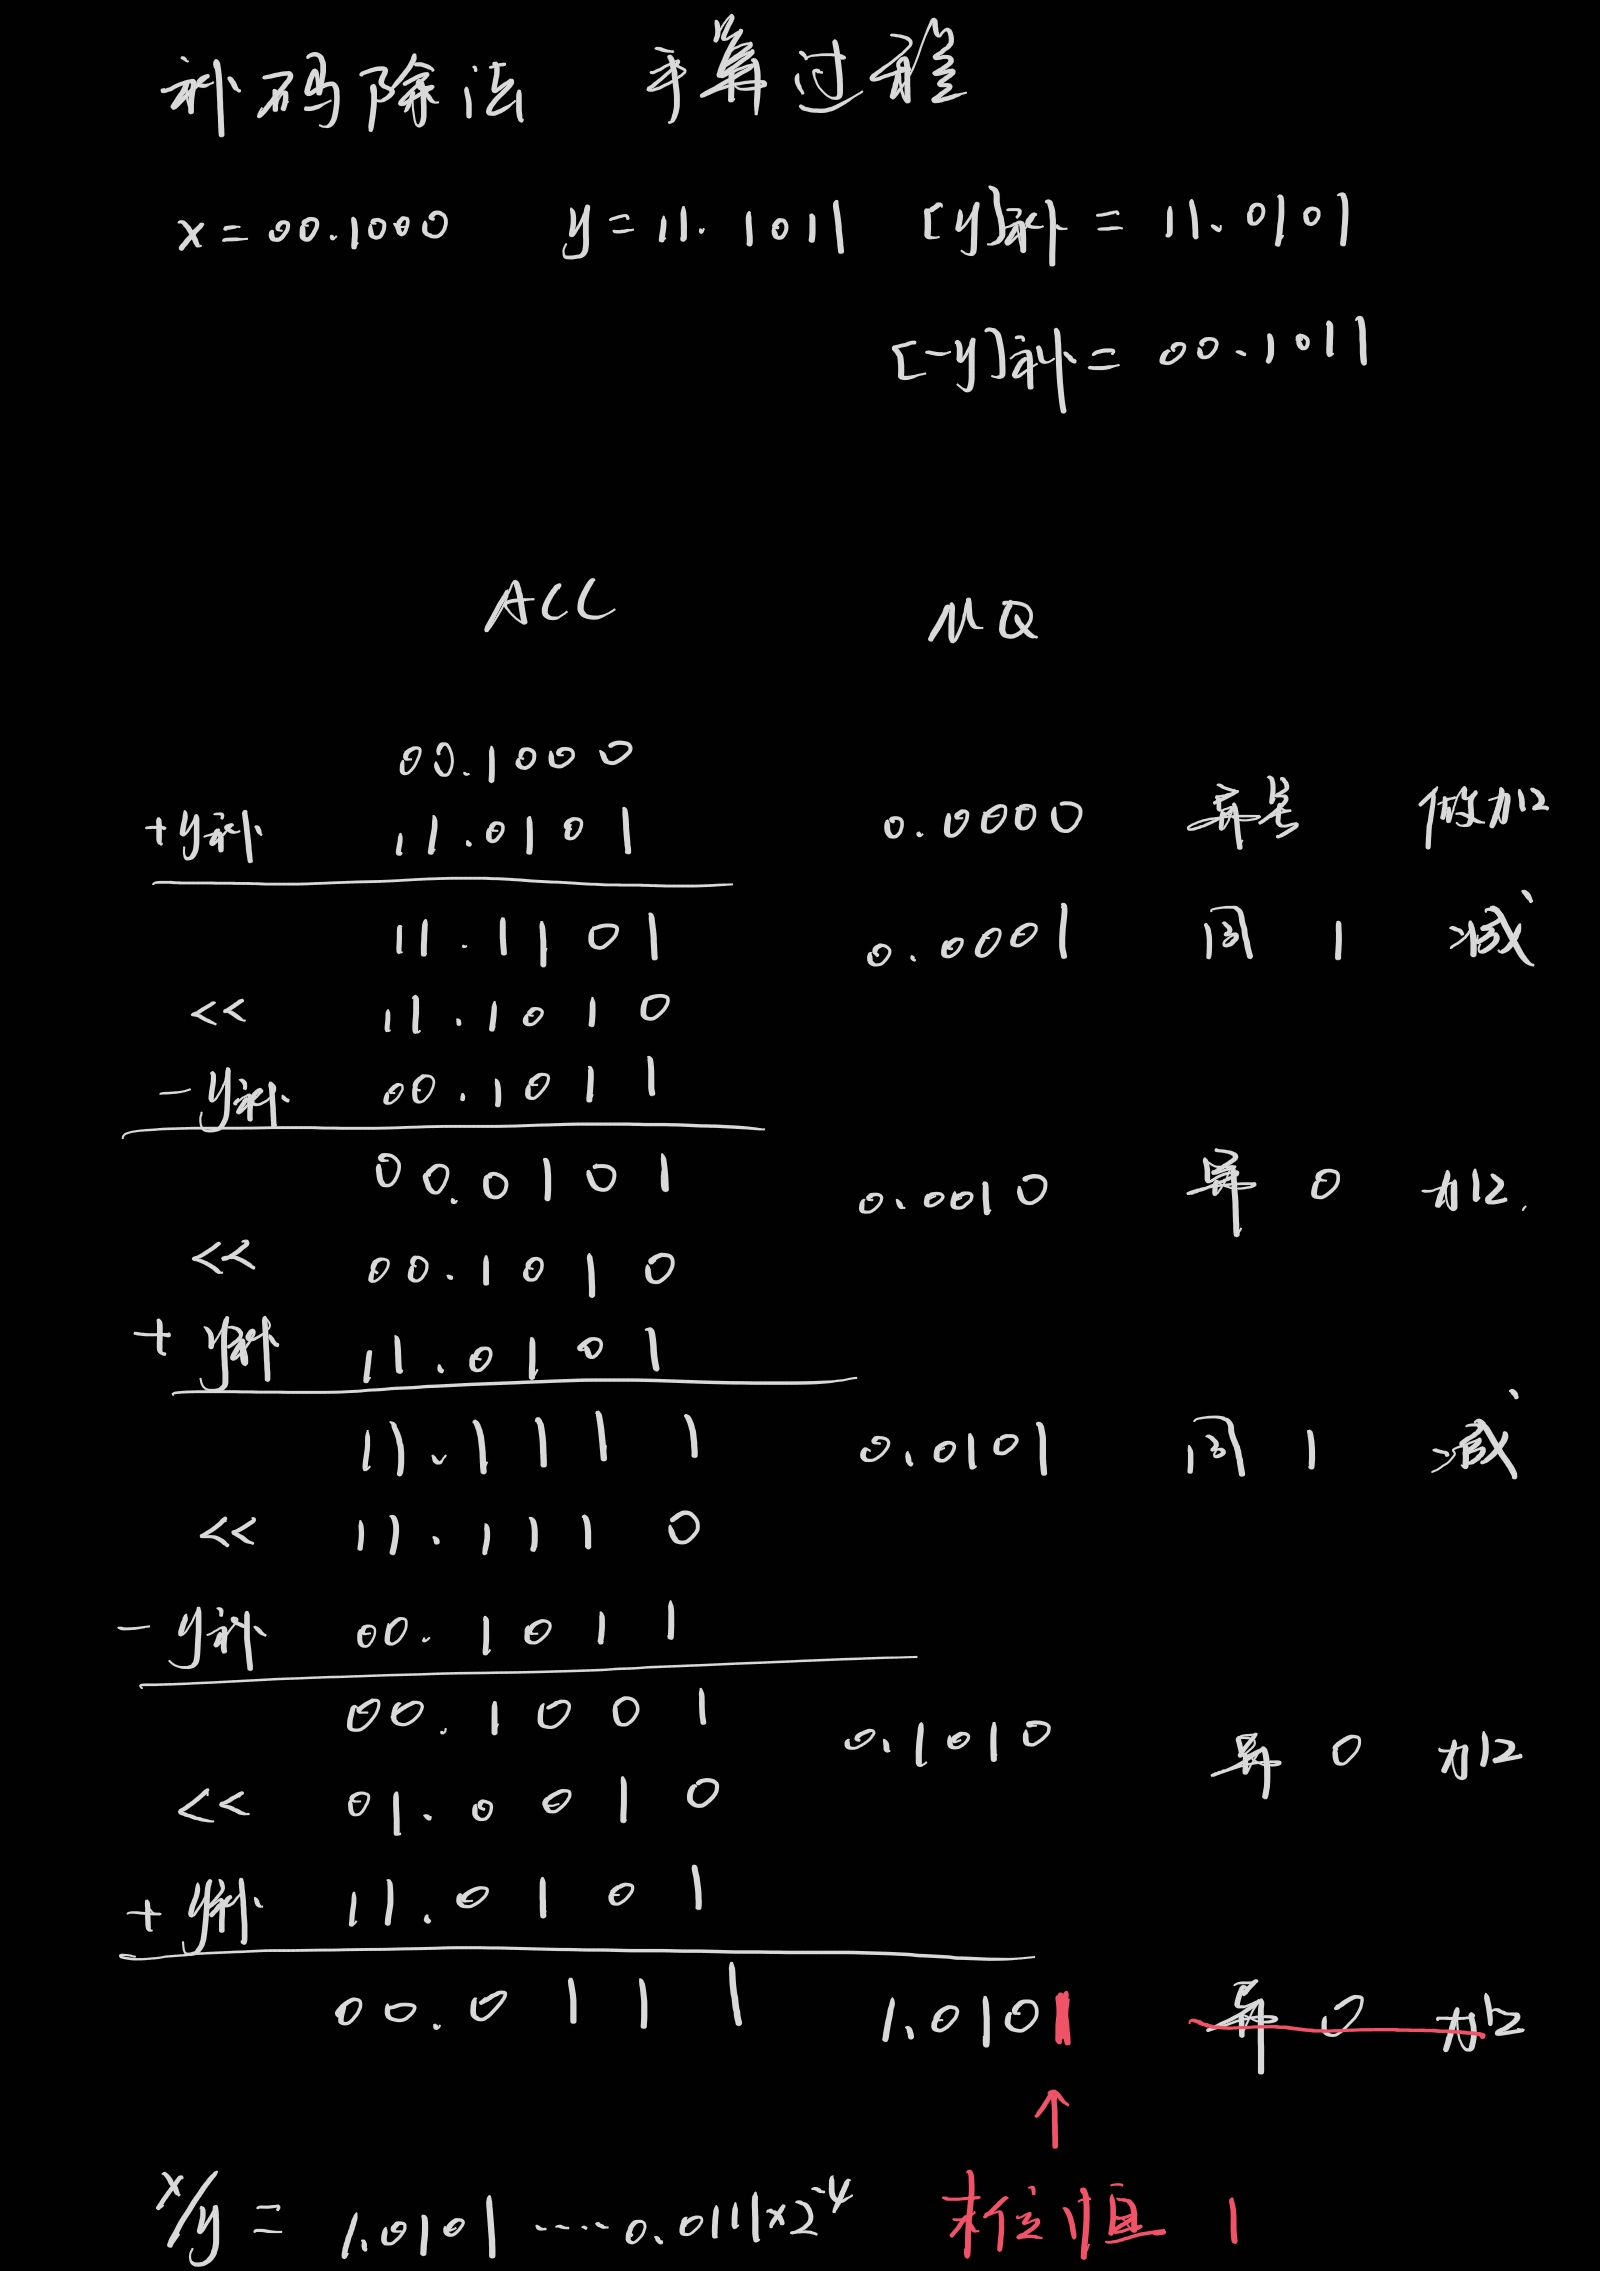 补码除法 手算过程
x = 00.1000 y = 11.1011 [y]补 = 11.0101
[-y]补 = 00.1011
ACC MQ
00.1000
+y补 11.0101 0.0000 异号 做加
11.1101 0.0001 同 1 减
<< 11.1010
-y补 00.1011
00.0101 0.0010 异 0 加
<< 00.1010
+y补 11.0101
11.1111 0.0101 同 1 减
<< 11.1110
-y补 00.1011
00.1001 0.1010 异 0 加
<< 01.0010
+y补 11.0101
00.0111 1.0101 异 0 加
↑
x/y = 1.0101 ····· 0.0111×2⁻⁴ 末位恒 1